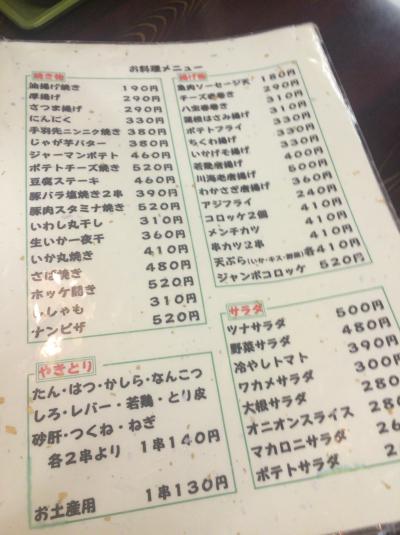 お料理メニュー
焼き物
油揚げ焼き 190円
厚揚げ 290円
さつま揚げ 290円
にんにく 330円
手羽先ニンニク焼き 380円
じゃが芋バター 380円
ジャーマンポテト 460円
ポテトチーズ焼き 520円
豆腐ステーキ 460円
豚バラ塩焼き2串 390円
豚肉スタミナ焼き 520円
いわし丸干し 310円
生いか一夜干 360円
いか丸焼き 410円
さば焼き 480円
ホッケ開き 520円
ししゃも 310円
ナンピザ 520円
揚げ物
魚肉ソーセージ天 180円
チーズ春巻き 290円
八宝春巻き 310円
蓮根はさみ揚げ 310円
ポテトフライ 330円
ちくわ揚げ 330円
いかげそ揚げ 330円
若鶏唐揚げ 400円
川海老唐揚げ 500円
わかさぎ唐揚げ 360円
アジフライ 240円
コロッケ2個 410円
メンチカツ 410円
串カツ2串 410円
天ぷら(いか・キス・野菜)各410円
ジャンボコロッケ 520円
やきとり
たん・はつ・かしら・なんこつ
しろ・レバー・若鶏・とり皮
砂肝・つくね・ねぎ
各2串より 1串140円
お土産用 1串130円
サラダ
ツナサラダ 500円
野菜サラダ 480円
冷やしトマト 390円
ワカメサラダ 300円
大根サラダ 280
オニオンスライス 28
マカロニサラダ 26
ポテトサラダ 2